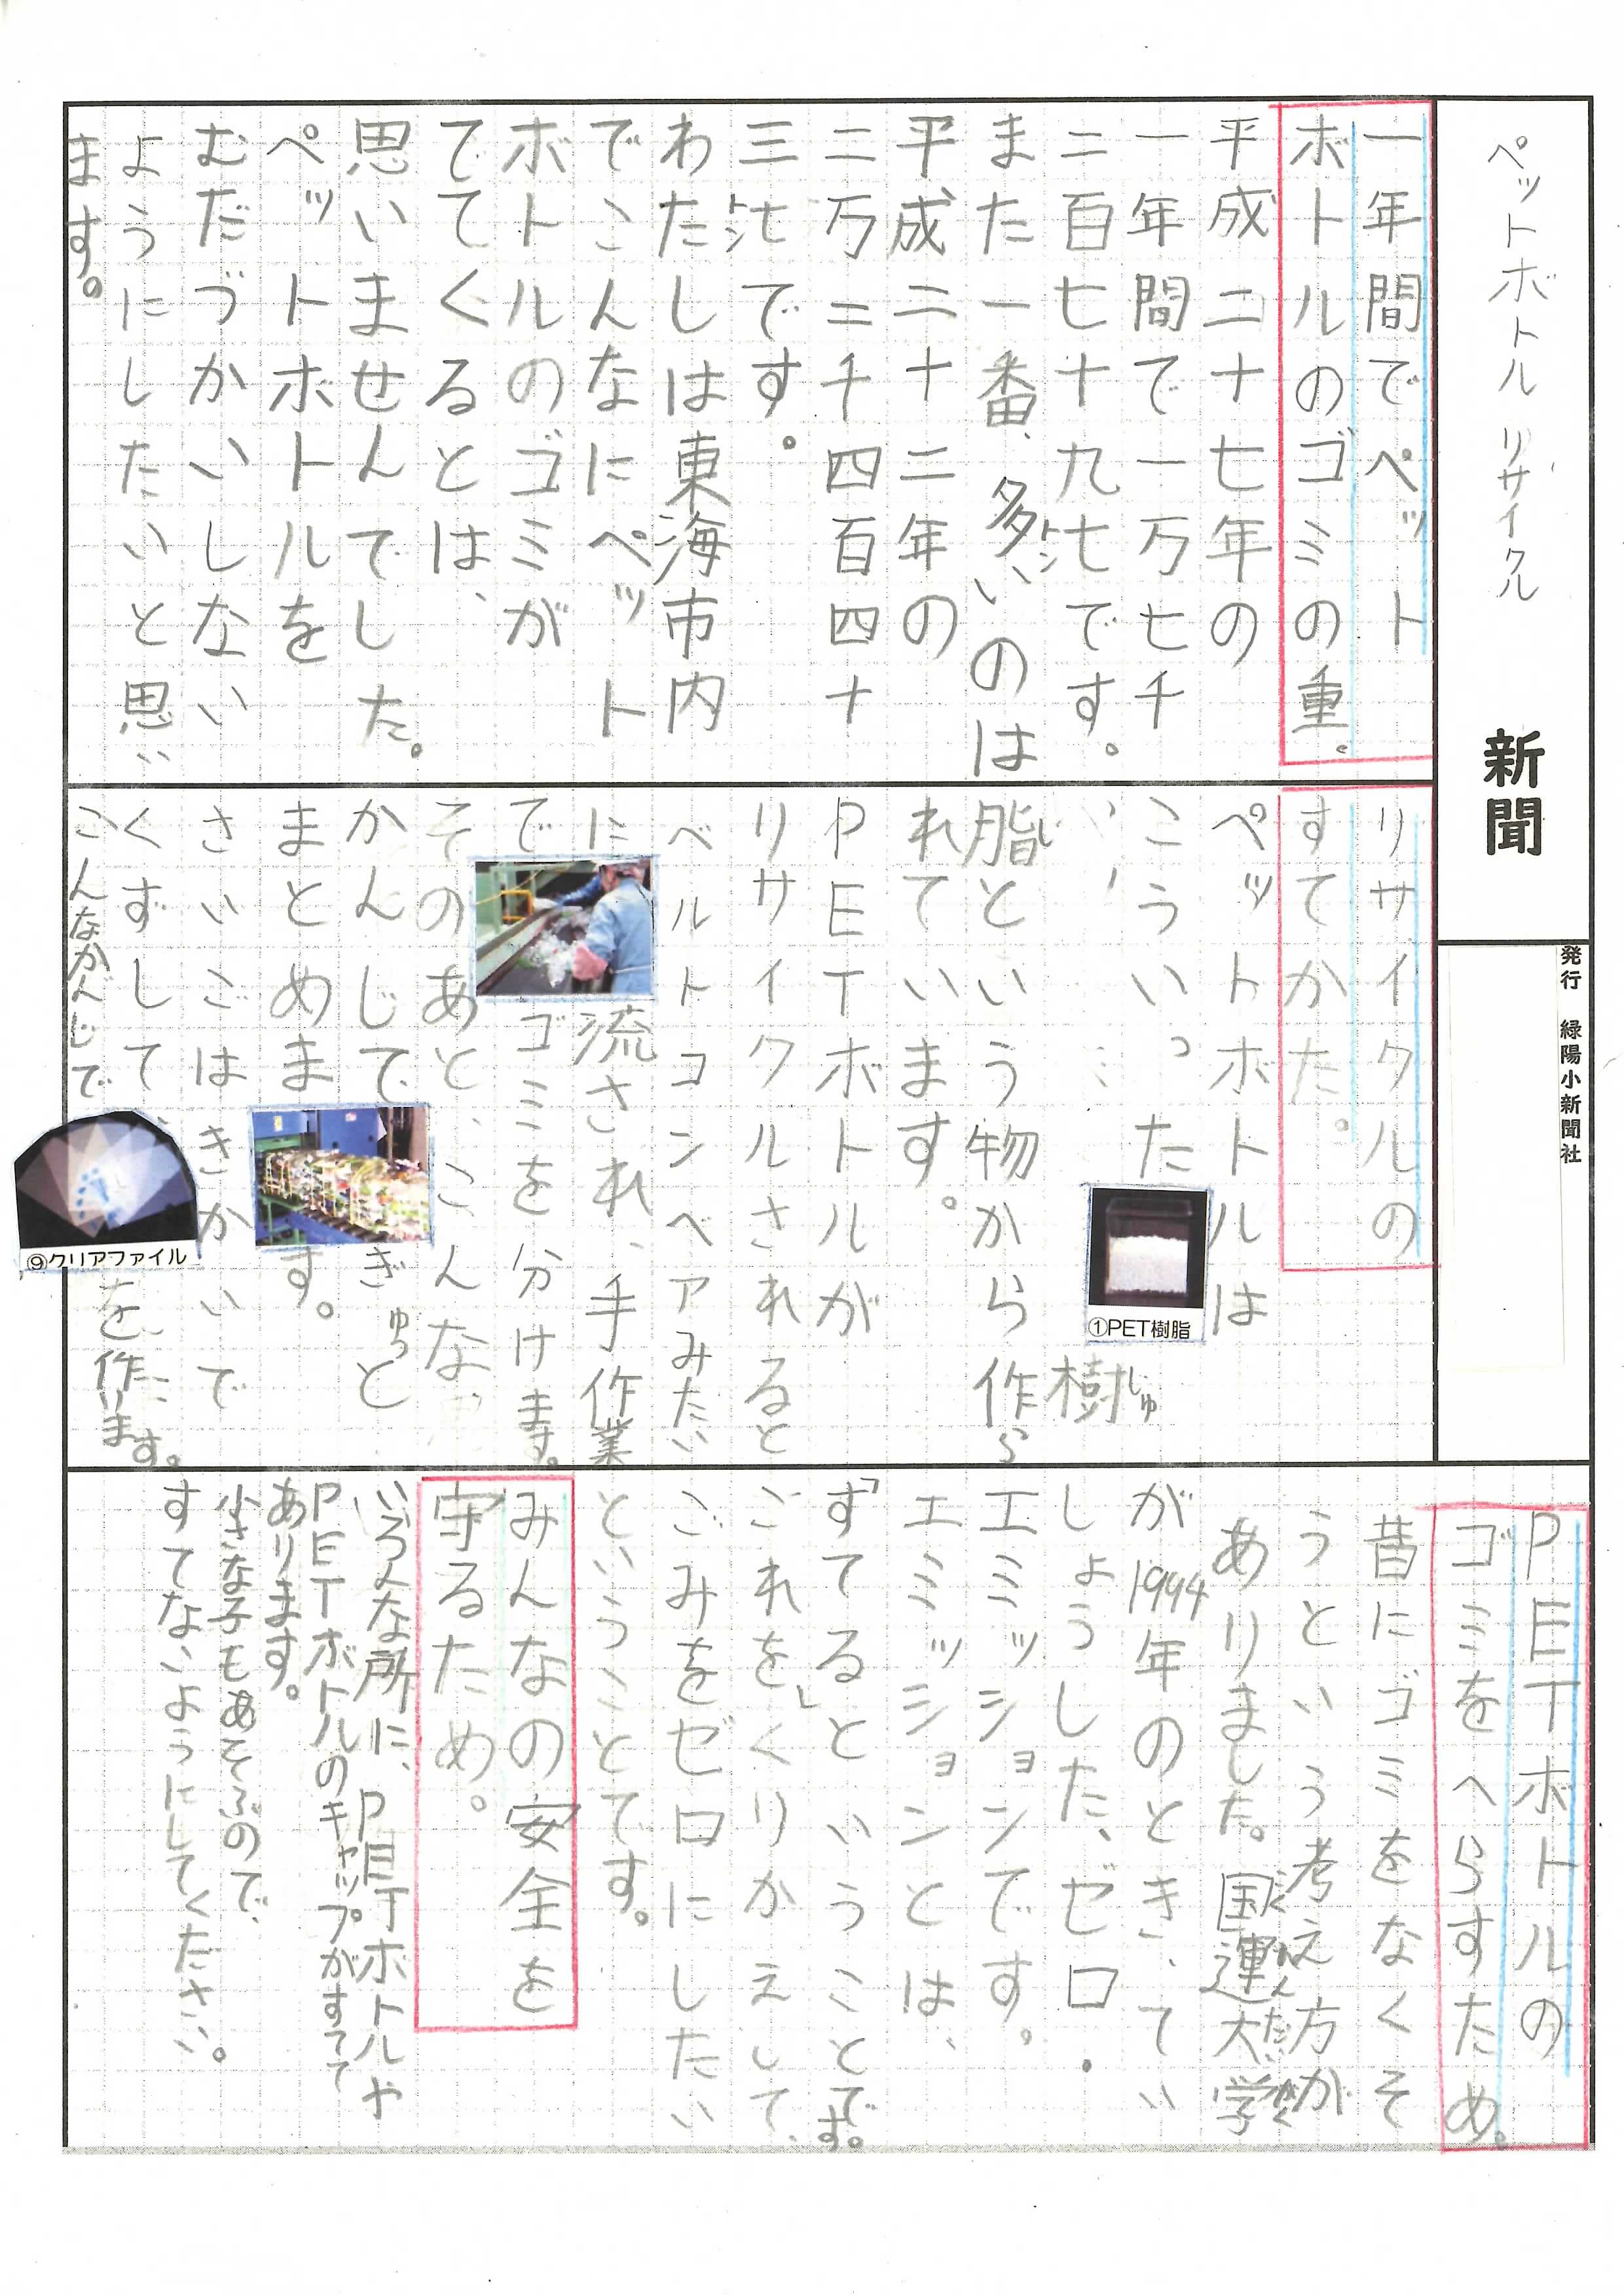 ペットボトルリサイクル
新聞
発行 緑陽小新聞社
一年間でペット
ボトルのゴミの重。
平成二十七年の
一年間で一万七千
二百七十九㌧です。
また一番、多いのは
平成二十二年の
二万二千四百四十
三㌧です。
わたしは東海市内
でこんなにペット
ボトルのゴミが
でてくるとは、
思いませんでした。
ペットボトルを
むだづかいしない
ようにしたいと思い
ます。
リサイクルの
すてかた。
ペットボトルは
こういった
①PET樹脂
樹しゅ
脂しという物から作ら
れています。
PETボトルが
リサイクルされると
ベルトコンベアみたい
に流され、手作業
でゴミを分けます。
そのあと、こんな
かんじでぎゅっと
まとめます。
さいごはきかいで
くずして、
こんなかんじで
⑨クリアファイル
を作ります。
PETボトルの
ゴミをへらすため。
昔にゴミをなくそ
うという考え方が
ありました。国運大学
が1994年のとき、てい
しょうした、ゼロ・
エミッションです。
エミッションとは、
「すてる」ということです。
これをくりかえして、
ごみをゼロにしたい
ということです。
みんなの安全を
守るため。
いろんな所に、PETボトルや
PETボトルのキャップがすてて
あります。
小さな子もあそぶので、
すてないようにしてください。